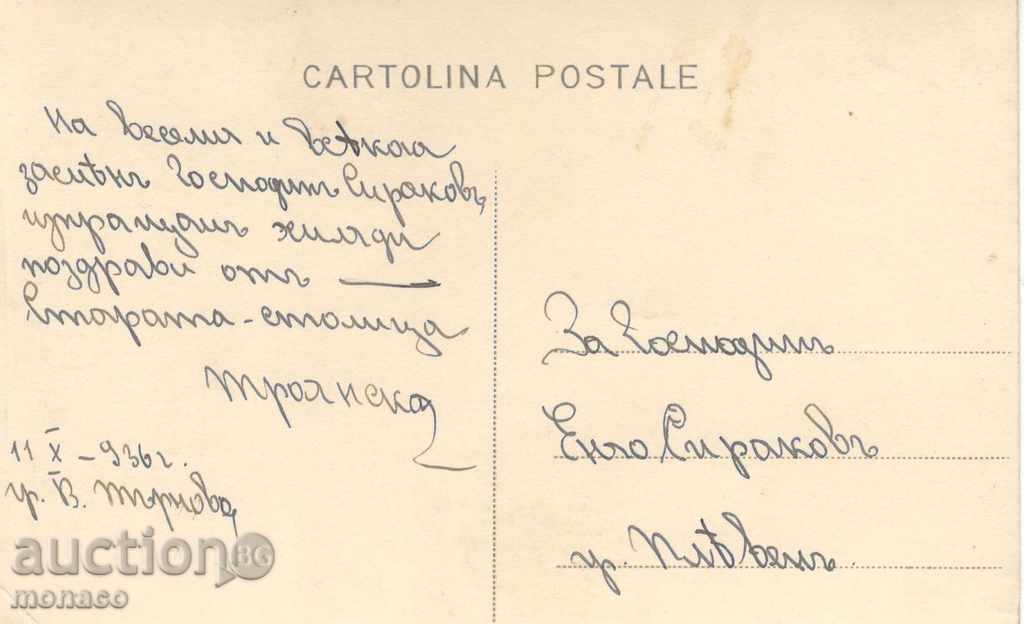 CARTOLINA POSTALE
На весели и вѣкога
засмѣнъ Господинъ Сираковъ,
изпращамъ хиляди
поздрави отъ —
Старата - столица
Троянска
11 X - 936 г.
гр. В. Търново
За Господинъ
Енчо Сираковъ
гр. Плѣвенъ
auction BG
monaco